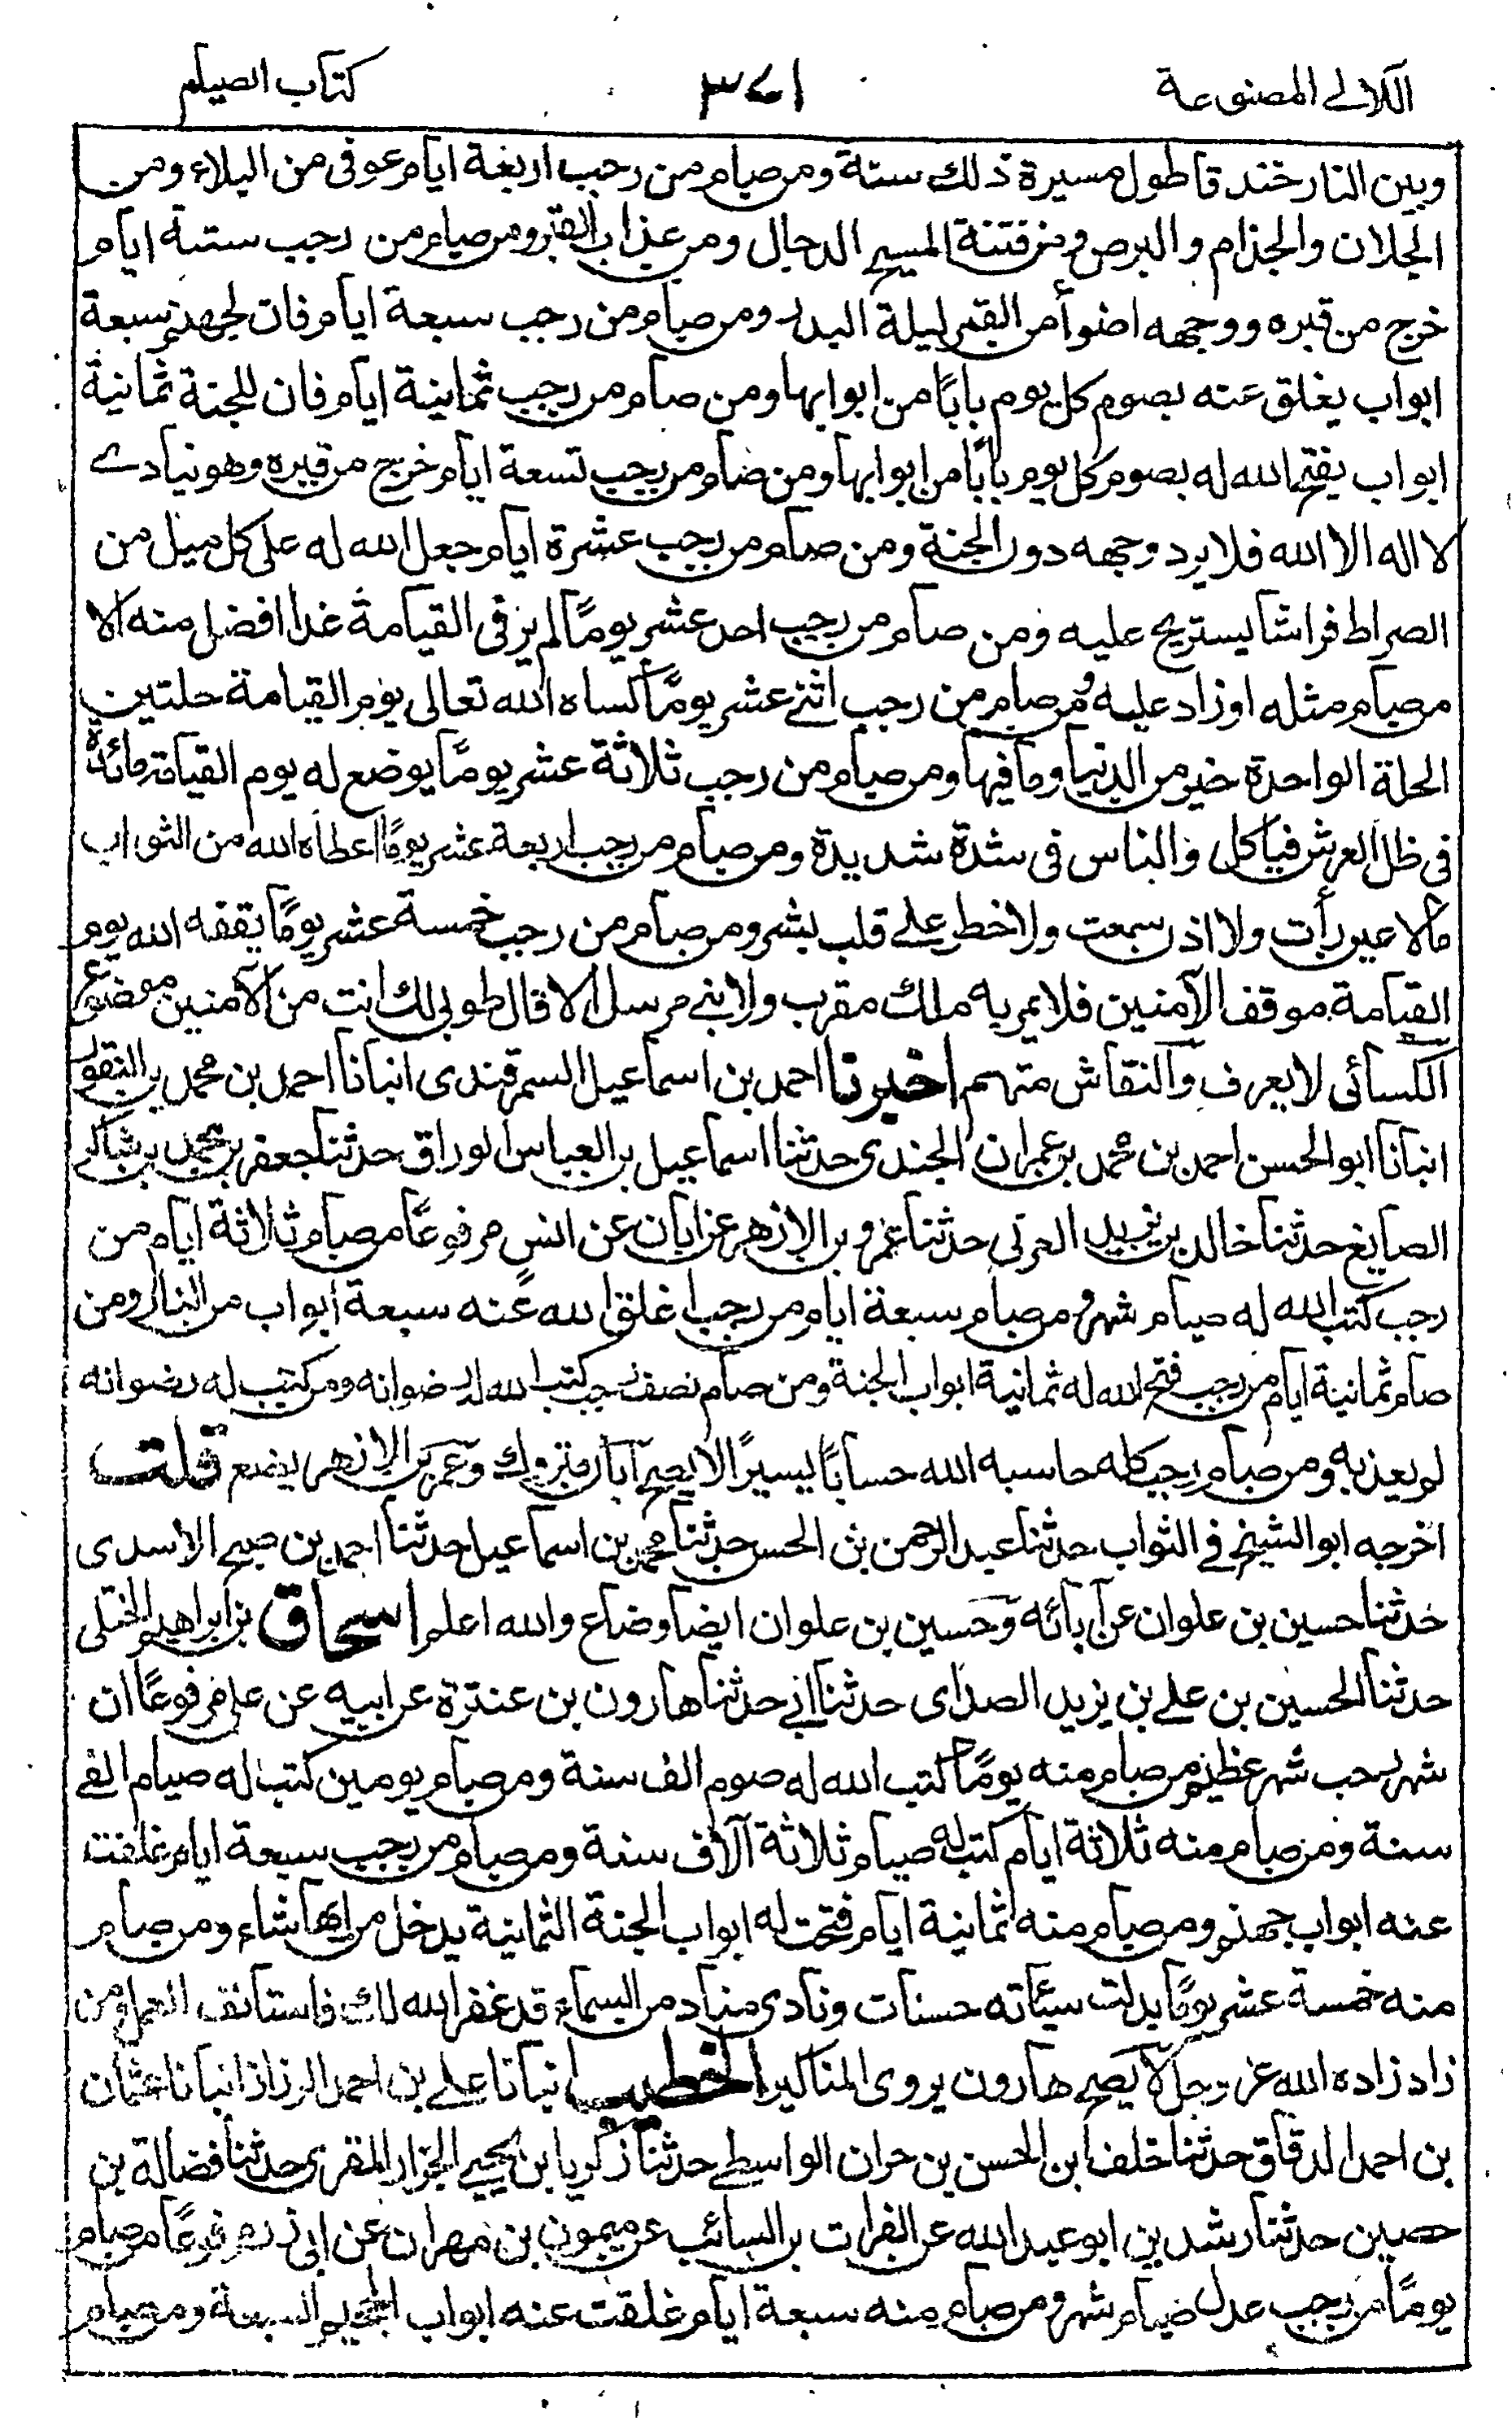 اللآلي المصنوعة ٣٧١ كتاب الصيام
وبين النار خندقا طول مسيرة ذلك سنة ومن صام من رجب اربعة ايام عوفى من البلاء ومن
الجلان والجذام والبرص ومن فتنة المسيح الدجال ومن عذاب القبر ومن صام من رجب ستة ايام
خرج من قبره ووجهه اضوأ من القمر ليلة البدر ومن صام من رجب سبعة ايام فان لجهنم سبعة
ابواب يغلق عنه بصوم كل يوم بابًا من ابوابها ومن صام من رجب ثمانية ايام فان للجنة ثمانية
ابواب يفتح الله له بصوم كل يوم بابًا من ابوابها ومن صام من رجب تسعة ايام خرج من قبره وهو ينادى
لا اله الا الله فلا يرد وجهه دون الجنة ومن صام من رجب عشرة ايام جعل الله له على كل ميل من
الصراط فراشا يستريح عليه ومن صام من رجب احد عشر يومًا لم ير فى القيامة غدا افضل منه الا
من صام مثله او زاد عليه ومن صام من رجب اثنے عشر يومًا كساه الله تعالى يوم القيامة حلتين
الحلة الواحدة خير من الدنيا وما فيها ومن صام من رجب ثلاثة عشر يومًا يوضع له يوم القيامة مائدة
فى ظل العرش فياكل والناس فى شدة شديدة ومن صام من رجب اربعة عشر يومًا اعطاه الله من الثواب
مالا عين رأت ولا اذن سمعت ولا خطر علے قلب بشر ومن صام من رجب خمسة عشر يومًا يقفه الله يوم
القيامة موقف الآمنين فلا يمر به ملك مقرب ولا نبے مرسل الا قال طوبى لك انت من الآمنين موضوع
الكسائى لا يعرف والنقاش متهم اخبرنا احمد بن اسماعيل السمرقندى انبانا احمد بن محمد بن النقور
انبانا ابو الحسن احمد بن محمد بن عمران الجندى حدثنا اسماعيل بن العباس الوراق حدثنا جعفر بن محمد بن شاكر
الصايغ حدثنا خالد بن يزيد العرنى حدثنا عمرو بن الازهر عن ابان عن انس مرفوعًا من صام ثلاثة ايام من
رجب كتب الله له صيام شهر ومن صام سبعة ايام من رجب اغلق الله عنه سبعة ابواب من النار ومن
صام ثمانية ايام من رجب فتح الله له ثمانية ابواب الجنة ومن صام نصف رجب كتب الله له رضوانه ومن كتب له رضوانه
لم يعذبه ومن صام رجب كله حاسبه الله حسابًا يسيرًا لا يصح ابان متروك وعمر بن الازهر يضع قلت
اخرجه ابو الشيخ فے الثواب حدثنا عبد الرحمن بن الحسن حدثنا محمد بن اسماعيل حدثنا احمد بن صبيح الاسدى
حدثنا حسين بن علوان عن آبائه وحسين بن علوان ايضا وضاع والله اعلم اسحاق بن ابراهيم الختلى
حدثنا الحسين بن علے بن يزيد الصداى حدثنا ابى حدثنا هارون بن عنترة عن ابيه عن على مرفوعًا ان
شهر رجب شهر عظيم من صام منه يومًا كتب الله له صوم الف سنة ومن صام يومين كتب له صيام الفے
سنة ومن صام منه ثلاثة ايام كتب له صيام ثلاثة آلاف سنة ومن صام من رجب سبعة ايام غلقت
عنه ابواب جهنم ومن صام منه ثمانية ايام فتحت له ابواب الجنة الثمانية يدخل من ايها شاء ومن صام
منه خمسة عشر يومًا بدلت سيئاته حسنات ونادى مناد من السماء قد غفر الله لك فاستانف العمل ومن
زاد زاده الله عز وجل لا يصح هارون يروى المناكير الخطيب انبانا علے بن احمد الرزاز انبانا عثمان
بن احمد الدقاق حدثنا خلف ابن الحسن بن حران الواسطے حدثنا زكريا بن يحيے الخزاز المقرى حدثنا فضالة بن
حصين حدثنا رشد بن ابو عبد الله عن الفرات بن السائب عن ميمون بن مهران عن ابى ذر مرفوعًا من صام
يومًا من رجب عدل صيام شهر ومن صام منه سبعة ايام غلقت عنه ابواب الجحيم السبعة ومن صام